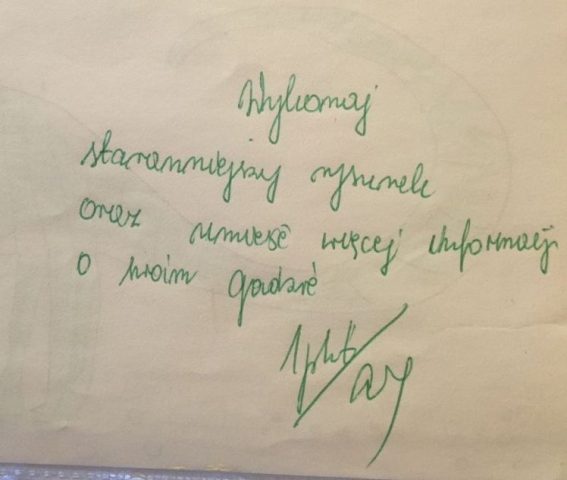 Wykonaj
staranniejszy rysunek
oraz umieść więcej informacji
o twoim gadzie
1pkt/